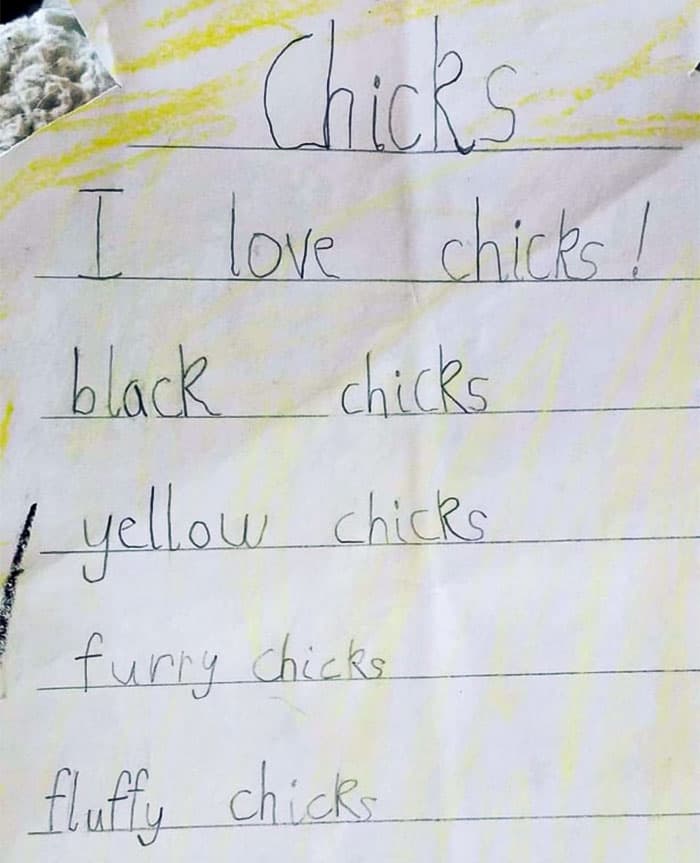 Chicks
I love chicks!
black chicks
yellow chicks
furry chicks
fluffy chicks